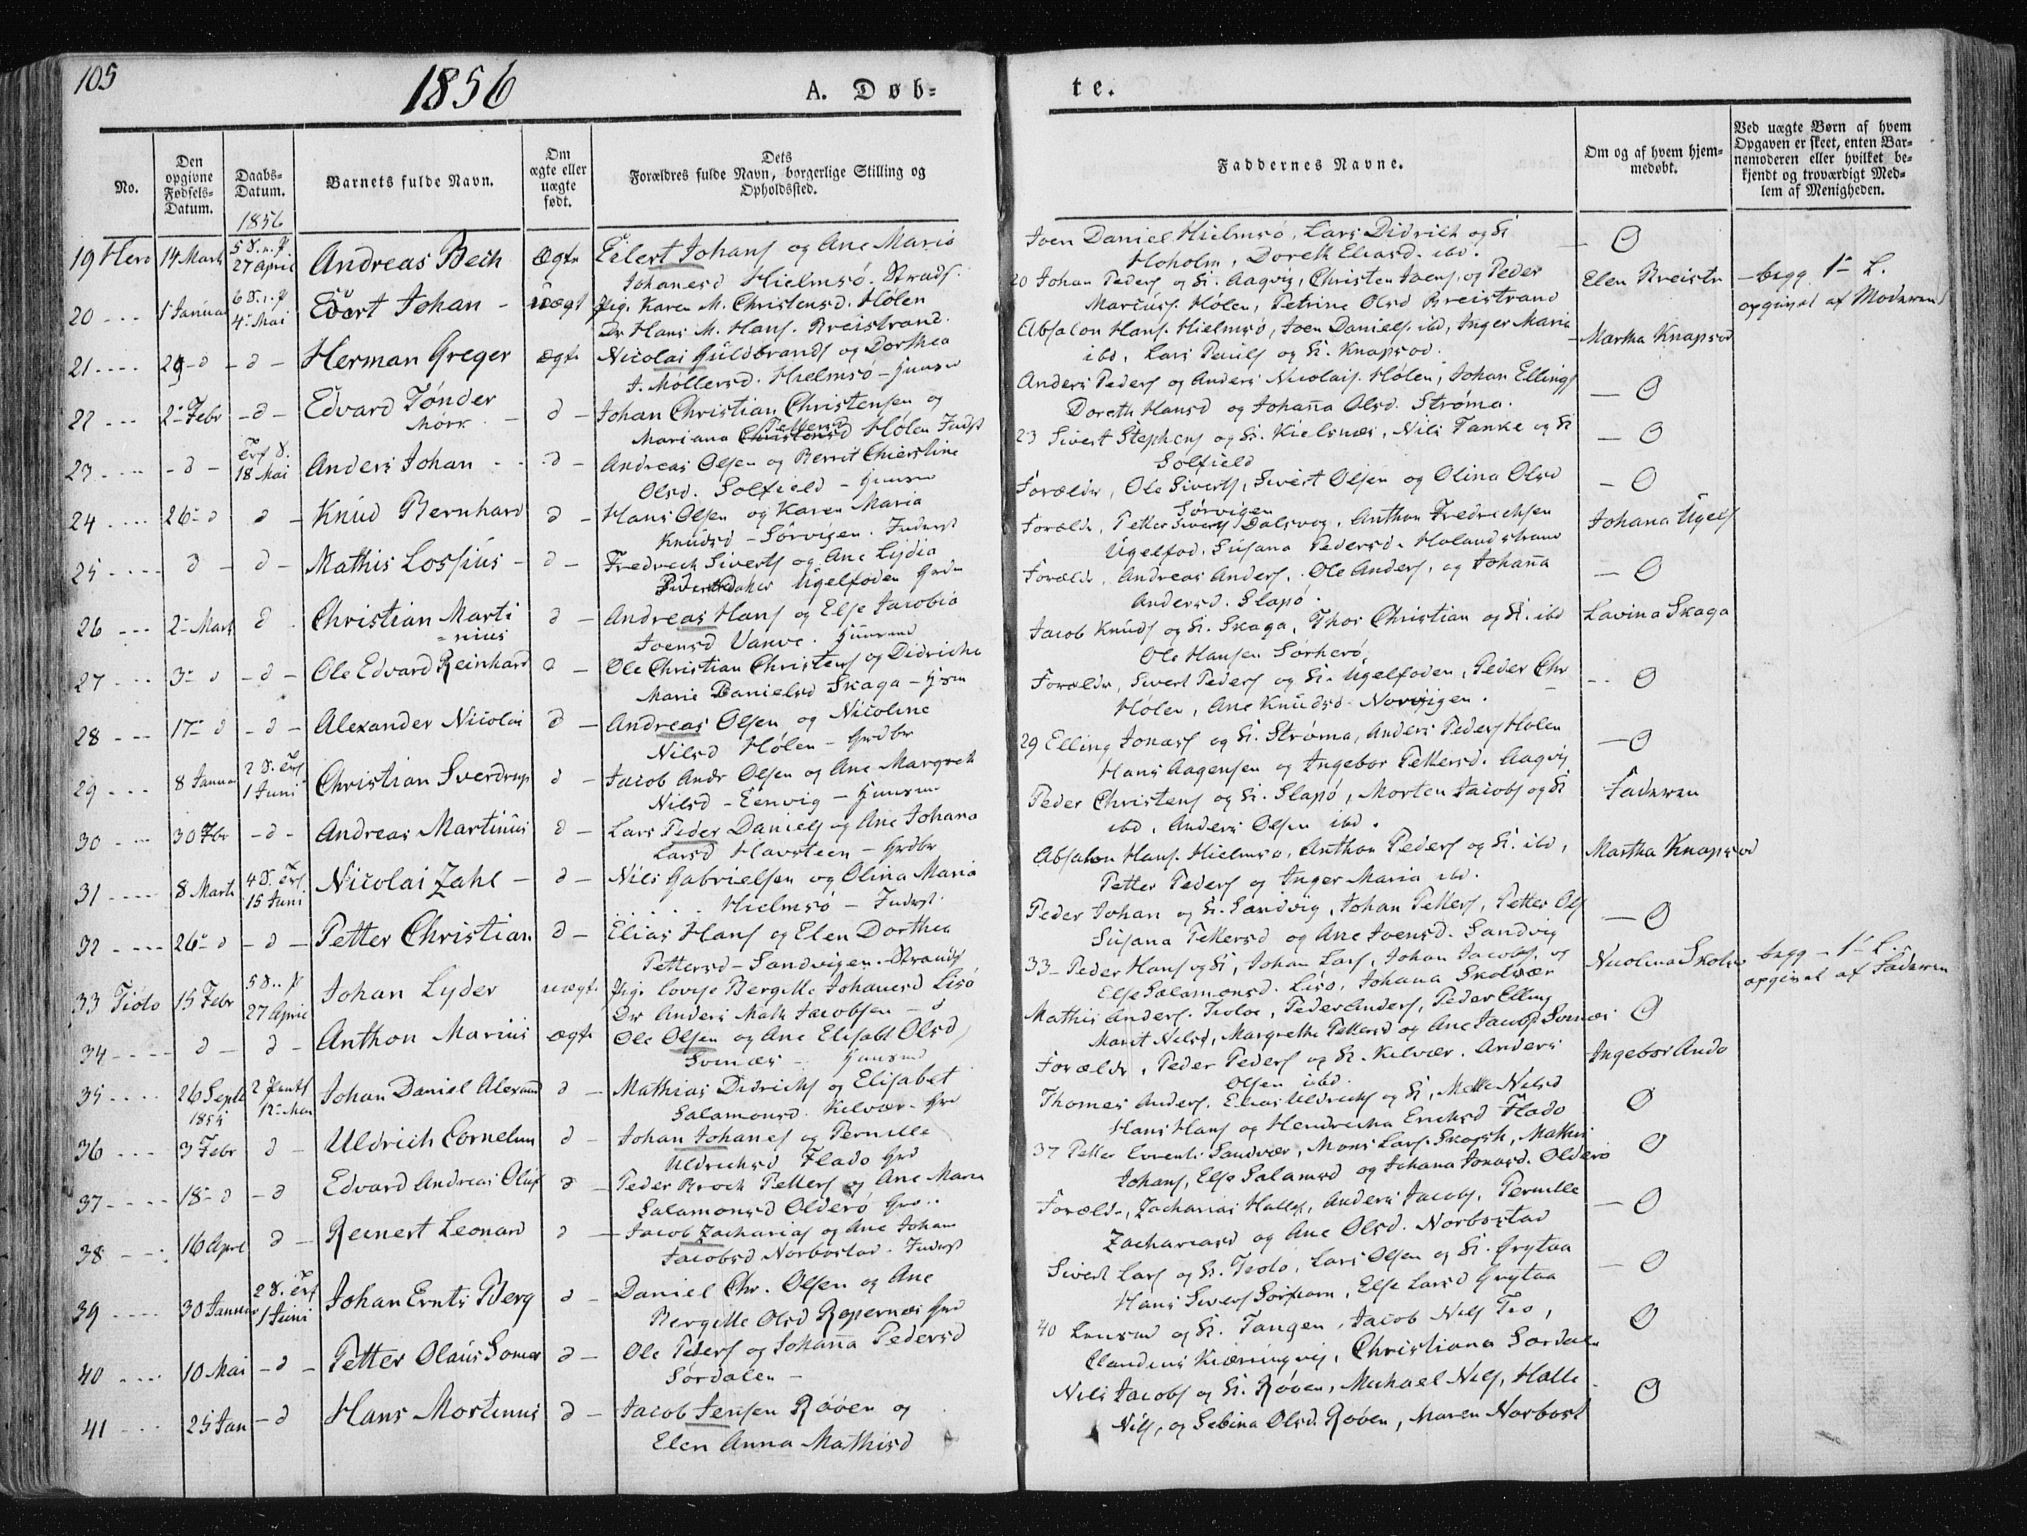 105
1856
A. Døb-
te.
No.
Den opgivne Fødsels-Datum.
Daabs-Datum.
1856
Barnets fulde Navn.
Om ægte eller uægte født.
Dets
Forældres fulde Navn, borgerlige Stilling og
Opholdssted.
Faddernes Navne.
Om og af hvem hjem-
medøbt.
Ved uægte Børn af hvem
Opgaven er skeet, enten Bar-
nemoderen eller hvilket be-
kjendt og troværdigt Med-
lem af Menigheden.
19 Herø 14 Marts 27 April Andreas Bech Ægte Eilert Johans og Ane Maria
Johanesd Hielmsö. Strads.
Joen Daniel Hielmsö, Lars Didrich og H
Hoholm, Doreth Eliasd. ibd.
20 1 Januar 4 Mai Edvart Johan - Uægt Pig. Karen M. Christensd. Hölen
Dr Hans M. Hans. Breistrand.
20 Johan Peders og H. Aagvig, Christen Joens, og Peder
Marcius. Hölen, Petrine Olsd Breistrand
Elen Breistr - begg. 1- L.
opgivet af Moderen
21 29 - d - d - Herman Greger ægte Nicolai Guldbrands og Dorthea
J. Møllersd. Hielmsö - Huusm
Absalon Hans. Hielmsö, Joen Daniels. ibd, Inger Maria
ibd, Lars Pauls og H. Knapsod.
Martha Knapsod
22 2 Febr - d - Edvard Tönder
Mörk - d - Johan Christian Christensen og
Mariana Pettersd Hölen Inderst
Anders Peders og Anders Nicolais. Hölen, Johan Ellings
Doreth Hansd og Johanna Olsd. Ströma.
O
23 - d - 18 Mai Anders Johan - d - Andreas Olsen og Berret Chierstine
Olsd. Solfield - Huusm
23 Sivert Stephens og H. Kielsnæs, Nils Tanke og H
Solfield
O
24 26 - d d Knud Bernhard d - Hans Olsen og Karen Maria
Knudsd - Sörvigen. Inderst
Forældr, Ole Siverts, Sivert Olsen og Olina Olsd
Sörvigen
O
25 d - d - Mathis Lossius - d - Fredrech Siverts og Ane Lydia
Ugelfoden Grdm
Forældr, Petter Siverts Dalsvog, Anthon Fredrechsen
Ugelfod. Susana Pedersd. Holandstrand
Johana Ugels
26 2 Marts d Christian Marti
=nius d - Andreas Hans og Else Jacobia
Joensd Vanve. Huusmd
Forældr, Andreas Anders, Ole Anders, og Johanna
Andersd. Slapö.
O
27 3 - d - d - Ole Edvard Reinhard d - Ole Christian Christens og Didricha
Marie Danielsd Skaga - Hsm
Jacob Knuds og H. Skaga, Thor Christian og H. ibd
Ole Hansen Sörherö,
Lavina Skaga
28 17 - d - d - Alexander Nicolai d - Andreas Olsen og Nicoline
Nilsd Hölen - Grdbr
Forældr, Sivert Peders og H. Ugelfoden, Peder Chr
Hölen, Ane Knudsd - Norvigen.
O
29 8 Januar 1 Juni Christian Sverdrup d - Jacob Andr Olsen og Ane Margreth
Nilsd - Eenvig - Huusm
29 Elling Jonass og H. Ströma, Anders Peders Hölen
Hans Aagensen og Ingebor Pettersd. Aagvig
O
30 30 Fbr - d - Andreas Martinus d - Lars Peder Daniels og Ane Johana
Larsd Havsteen - Grdbr
Peder Christens og H. Slapö, Morten Jacobs og H
ibd, Anders Olsen ibd.
Faderen
31 8 Marts 15 Juni Nicolai Zahl - d - Nils Gabrielsen og Olina Maria
Hielmsö - Inderst.
Absalon Hans. Hielmsö, Anthon Peders og H. ibd,
Petter Peders og Inger Maria ibd.
Martha Knapsod
32 26 - d - d - Petter Christian d - Elias Hans og Elen Dorthea
Pettersd - Sandvigen. Strands
Peder Johan og H. Sandvig, Johan Petters, Petter Ols
Susana Pettersd og Ane Joensd. Sandvig
O
33 Tiöto 15 Febr 27 April Johan Lyder uægte Pig. Lovise Bergitte Johanesd Lisö
Dr Anders Math Jacobsen - d
33 - Peder Hans og H, Johan Lars, Johan Jacobs. og
Else Salamonsd. Lisö, Johana Skolvær
Nicolina Skolv begg - 1- L.
opgivet af Faderen
34 d - d - Anthon Marius ægte Ole Olsen og Ane Elisabt Olsd,
Svinæs - Huusmd
Mathis Anders. Tiolöe, Peder Anders, Peder Elling
Maret Nelsd, Margrethe Pettersd og Ane Jacobsd Svinæs
O
35 26 Septb
1855 12 Mai Johan Daniel Alexand d - Mathias Didrichs og Elisabet
Salamonsd. Kelvær. Grd
Forældr, Peder Peders og H. Kelvær. Anders
Olsen ibd.
Ingebor Ando
36 3 Febr d - Uldrich Cornelius d - Johan Johanes og Pernille
Uldrichsd Flado Grd
Thomas Anders. Elias Uldrichs og H, Mette Nelsd
Hans Hans og Hendricha Erichsd Flado
O
37 18 - d - d Edvard Andreas Oluf d - Peder Broch Petters og Ane Maria
Salamonsd Olderö Grd
37 Petter Lorents Sandvær, Mons Lars. Skogsh, Mathis
Johans, Else Salamsd og Johana Jonasd. Olderö
O
38 16 Apri d - Reinert Leonard d - Jacob Zacharias og Ane Johan
Jacobsd Norbostad. Inderst
Forældr, Zacharias Halles, Anders Jacobs, Pernille
Zachariasd og Ane Olsd. Norbostad
O
39 30 Januar 1 Juni Johan Ernts Berg d - Daniel Chr. Olsen og Ane
Bergitte Olsd Ropernæs Grd
Sivert Lars og H. Tioto, Lars Olsen og H. Grytaa
Hans Sivers Sörfiorn, Else Larsd Grytaa
O
40 10 Mai - d - Petter Olaus Somer d - Ole Peders og Johanna Pedersd
Sördalen -
40 og H. Tangen, Jacob Nels Tro,
Claudius Kiæringvig, Christiana Sordalen
O
41 25 Jan - d Hans Mortinus d - Jacob Jensen Rööen og
Elen Anna Mathisd
Nils Jacobs og H. Röven, Michael Nels, Halle
Nils, og Sebina Olsd. Röven, Maren Norbost
O